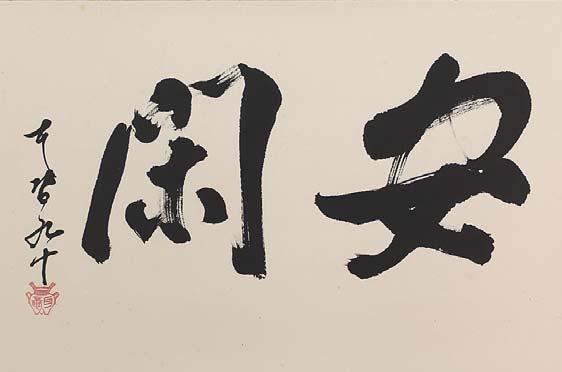 安閑
九十